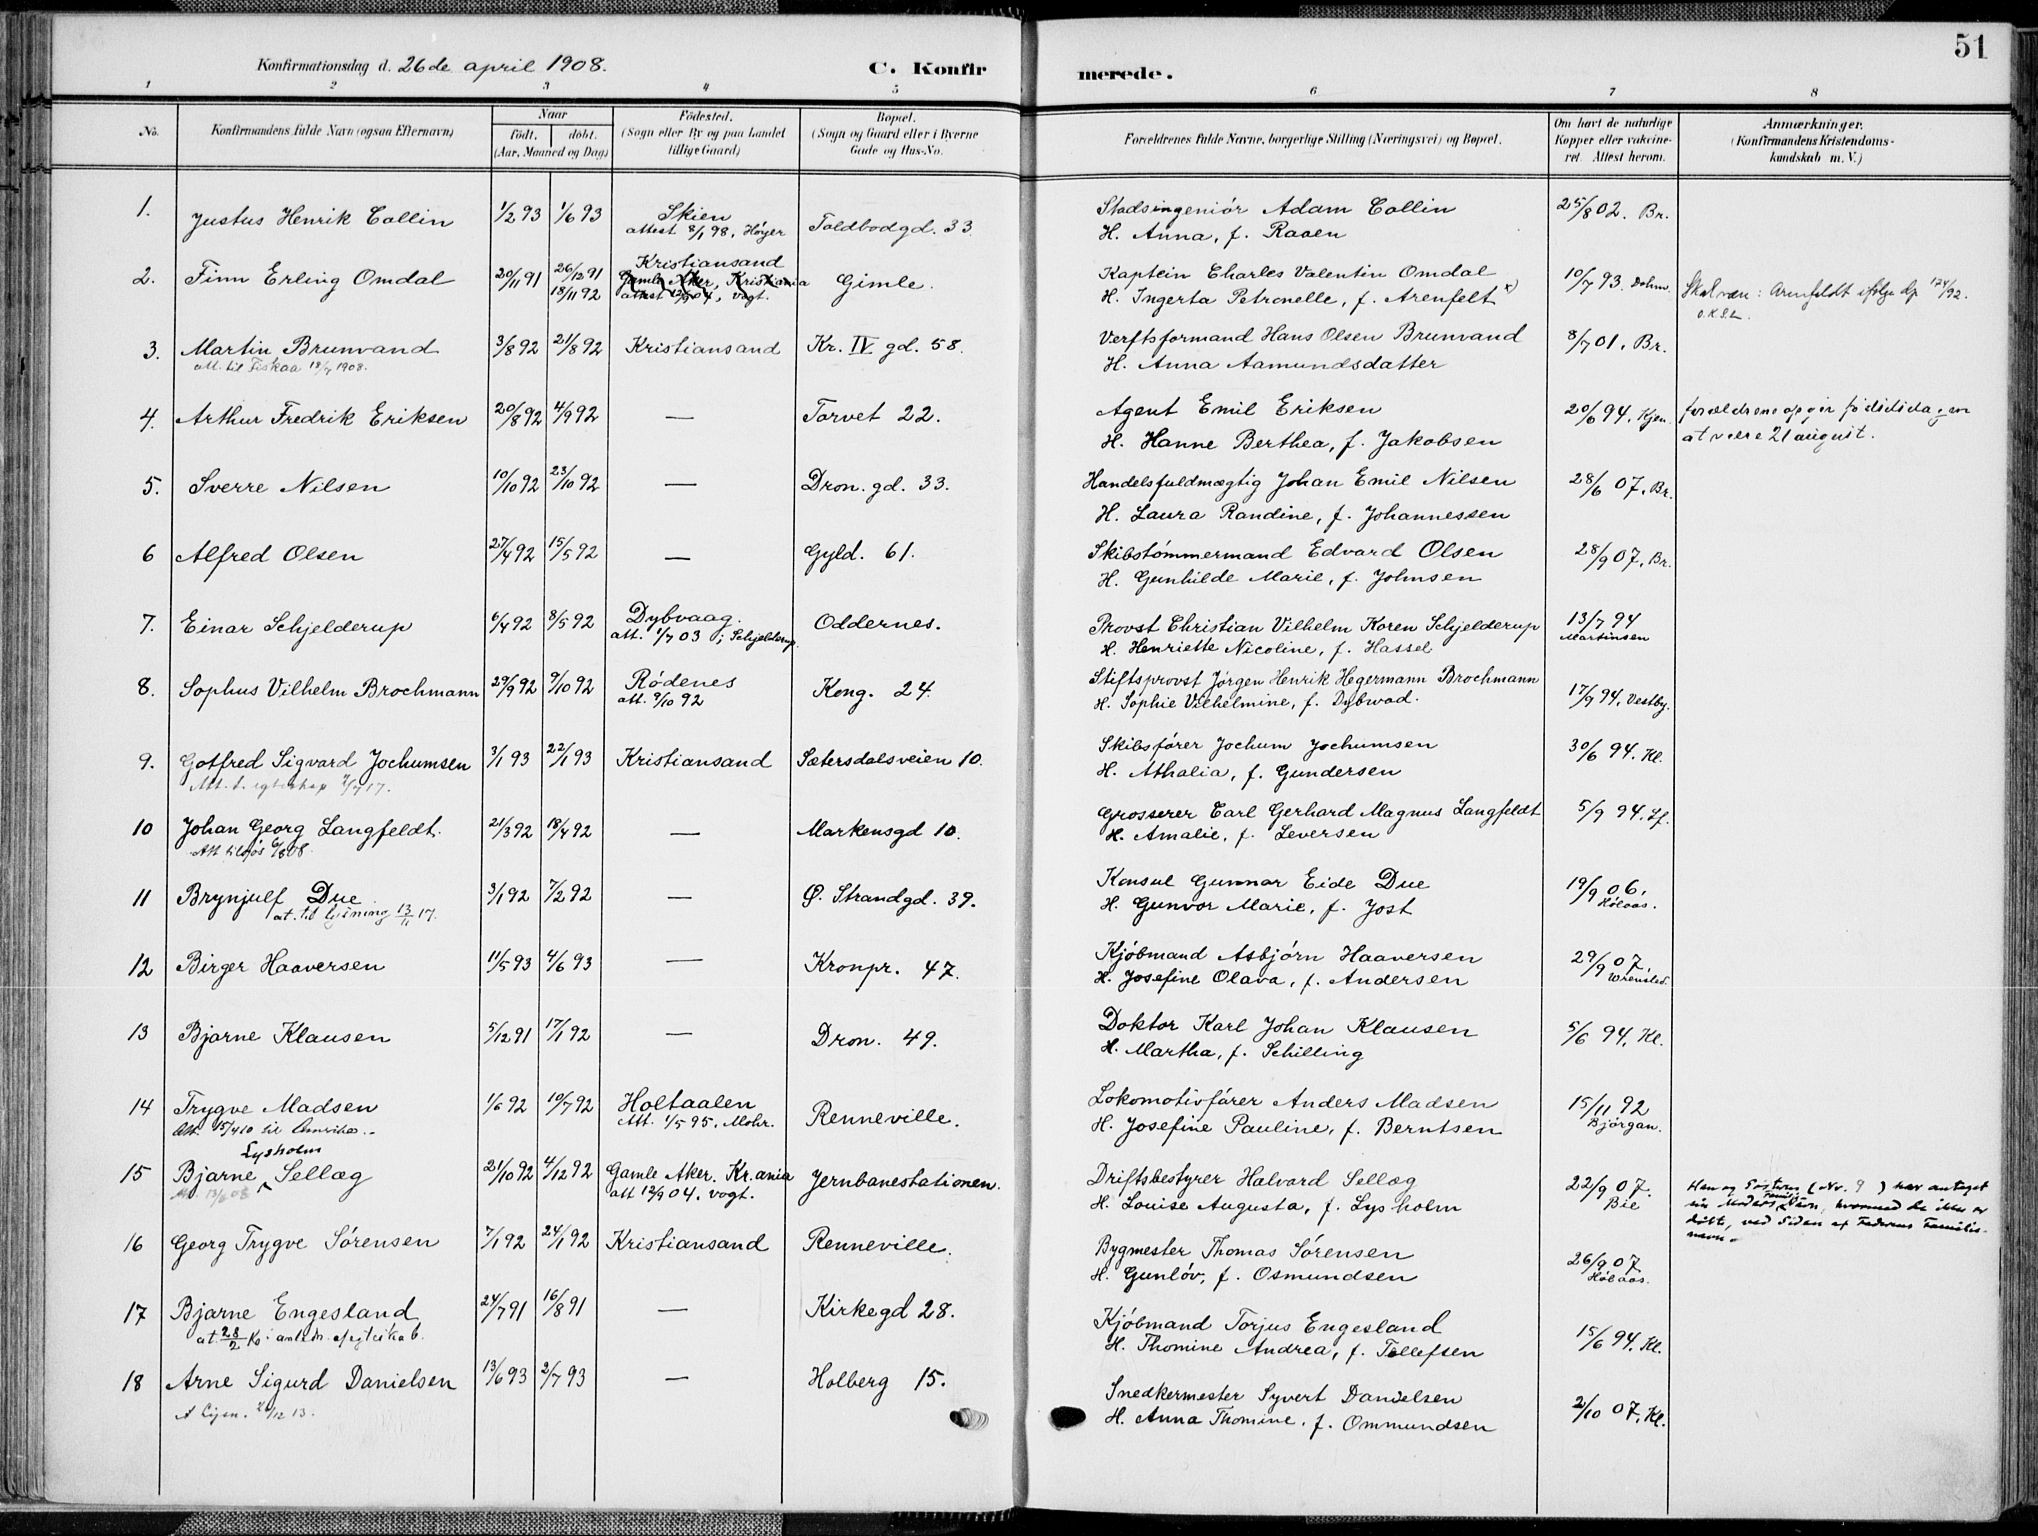 51
Konfirmationsdag d. 26de april 1908.
C. Konfirmerede.
1 2 3 4 5 6 7 8
No.
Konfirmandens fulde Navn (ogsaa Efternavn)
Naar
født. døbt.
(Aar, Maaned og Dag)
Fødested.
(Sogn eller By og paa Landet
tillige Gaard)
Bopæl.
(Sogn og Gaard eller i Byerne
Gade og Hus-No.
Forældrenes fulde Navne, borgerlige Stilling (Næringsvei) og Bopæl.
Om havt de naturlige
Kopper eller vakcine-
ret. Attest herom.
Anmærkninger.
(Konfirmandens Kristendoms-
kundskab m. V.)
1. Justus Henrik Collin 1/2 93 1/6 93 Skien Toldbodgd. 33. Stadsingeniør Adam Collin 25/8 02. Br.
attest 8/1 98, Høyer H. Anna, f. Raaen
2. Finn Erling Omdal 20/11 91 26/12 91 Kristiansand Gimle. Kaptein Charles Valentin Omdal 10/7 93. Dahm.
18/11 92 Gamle Aker, Kristiania
attest 12/9 04, Vogt. H. Ingerta Petronelle, f. Arenfelt x) Skal være: Arenfeldt ifølge dp 124/92.
3. Martin Brunvand 3/8 92 21/8 92 Kristiansand Kr. IV gd. 58. Verftsformand Hans Olsen Brunvand 8/7 01. Br.
att. til Fiskaa 1908. H. Anna Aamundsdatter
4. Arthur Fredrik Eriksen 20/8 92 4/9 92 — Torvet 22. Agent Emil Eriksen 20/6 94. Kjen. forældrene opgir fødselsdagen
H. Hanne Berthea, f. Jakobsen at være 21 august.
5. Sverre Nilsen 10/10 92 23/10 92 — Dron. gd. 33. Handelsfuldmægtig Johan Emil Nilsen 28/6 07. Br.
H. Laura Randine, f. Johannessen
6 Alfred Olsen 27/4 92 15/5 92 — Gyld. 61. Skibstømmermand Edvard Olsen 28/9 07. Br.
H. Gunhilde Marie, f. Johnsen
7. Einar Schjelderup 6/4 92 8/5 92 Dybvaag. Oddernes. Provst Christian Vilhelm Koren Schjelderup 13/7 94
att. 1/7 03 ; Schjelderup. H. Henriette Nicoline, f. Hassel Martinsen
8. Sophus Vilhelm Brochmann 29/9 92 9/10 92 Rødenes Kong. 24. Stiftsprovst Jørgen Henrik Hegermann Brochmann
att. 9/10 92 H. Sophie Vilhelmine, f. Dybwad. 17/9 94. Vestby.
9. Gotfred Sigvard Jochumsen 3/1 93 22/1 93 Kristiansand Sætersdalsveien 10. Skibsfører Jochum Jochumsen 30/6 94. Kl.
H. Athalia, f. Gundersen
10 Johan Georg Langfeldt. 21/3 92 18/4 92 — Markensgd 10. Grosserer Carl Gerhard Magnus Langfeldt 5/9 94. Lf.
Att tilsjøs 6/8 08. H. Amalie, f. Leversen
11 Brynjulf Due 3/1 92 7/2 92 — Ø. Strandgd. 39. Konsul Gunnar Eide Due 19/9 06.
at. til lysning 13/11 17. H. Gunvor Marie, f. Jost Høiaas.
12 Birger Haaversen 11/5 93 4/6 93 — Kronpr. 47. Kjøbmand Asbjørn Haaversen 29/9 07.
H. Josefine Olava, f. Andersen
13 Bjarne Klausen 5/12 91 17/1 92 — Dron. 49. Doktor Karl Johan Klausen 5/6 94. Kl.
H. Martha, f. Schilling
14 Trygve Madsen 1/6 92 10/7 92 Holtaalen Renneville. Lokomotivfører Anders Madsen 15/11 92
Att. 15/4 10 til Amerika. Att. 1/5 95. Mohr. H. Josefine Pauline, f. Berntsen Bjørgan.
Lysholm
15 Bjarne Sellæg 21/10 92 4/12 92 Gamle Aker. Kr.ania Jernbanestationen. Driftsbestyrer Halvard Sellæg 22/9 07. Han og Søsteren (Nr. 9 ) har antaget
Att. 13/6 08 att 12/9 04. Vogt. H. Louise Augusta, f. Lysholm Bie sin Moders Familienavn, hvormed de ikke er
døbte, ved Siden af Faderens Familie-
navn.
16 Georg Trygve Sørensen 7/1 92 24/1 92 Kristiansand Renneville. Bygmester Thomas Sørensen 26/9 07
H. Gunløv, f. Osmundsen Høiaas.
17 Bjarne Engesland 24/7 91 16/8 91 — Kirkegd 28. Kjøbmand Torjus Engesland 15/6 94. Kl.
H. Thomine Andrea, f. Tellefsen
18 Arne Sigurd Danielsen 13/6 93 2/7 93 — Holberg 15. Snedkermester Syvert Danielsen 2/10 07. Kl.
H. Anna Thomine, f. Ommundsen